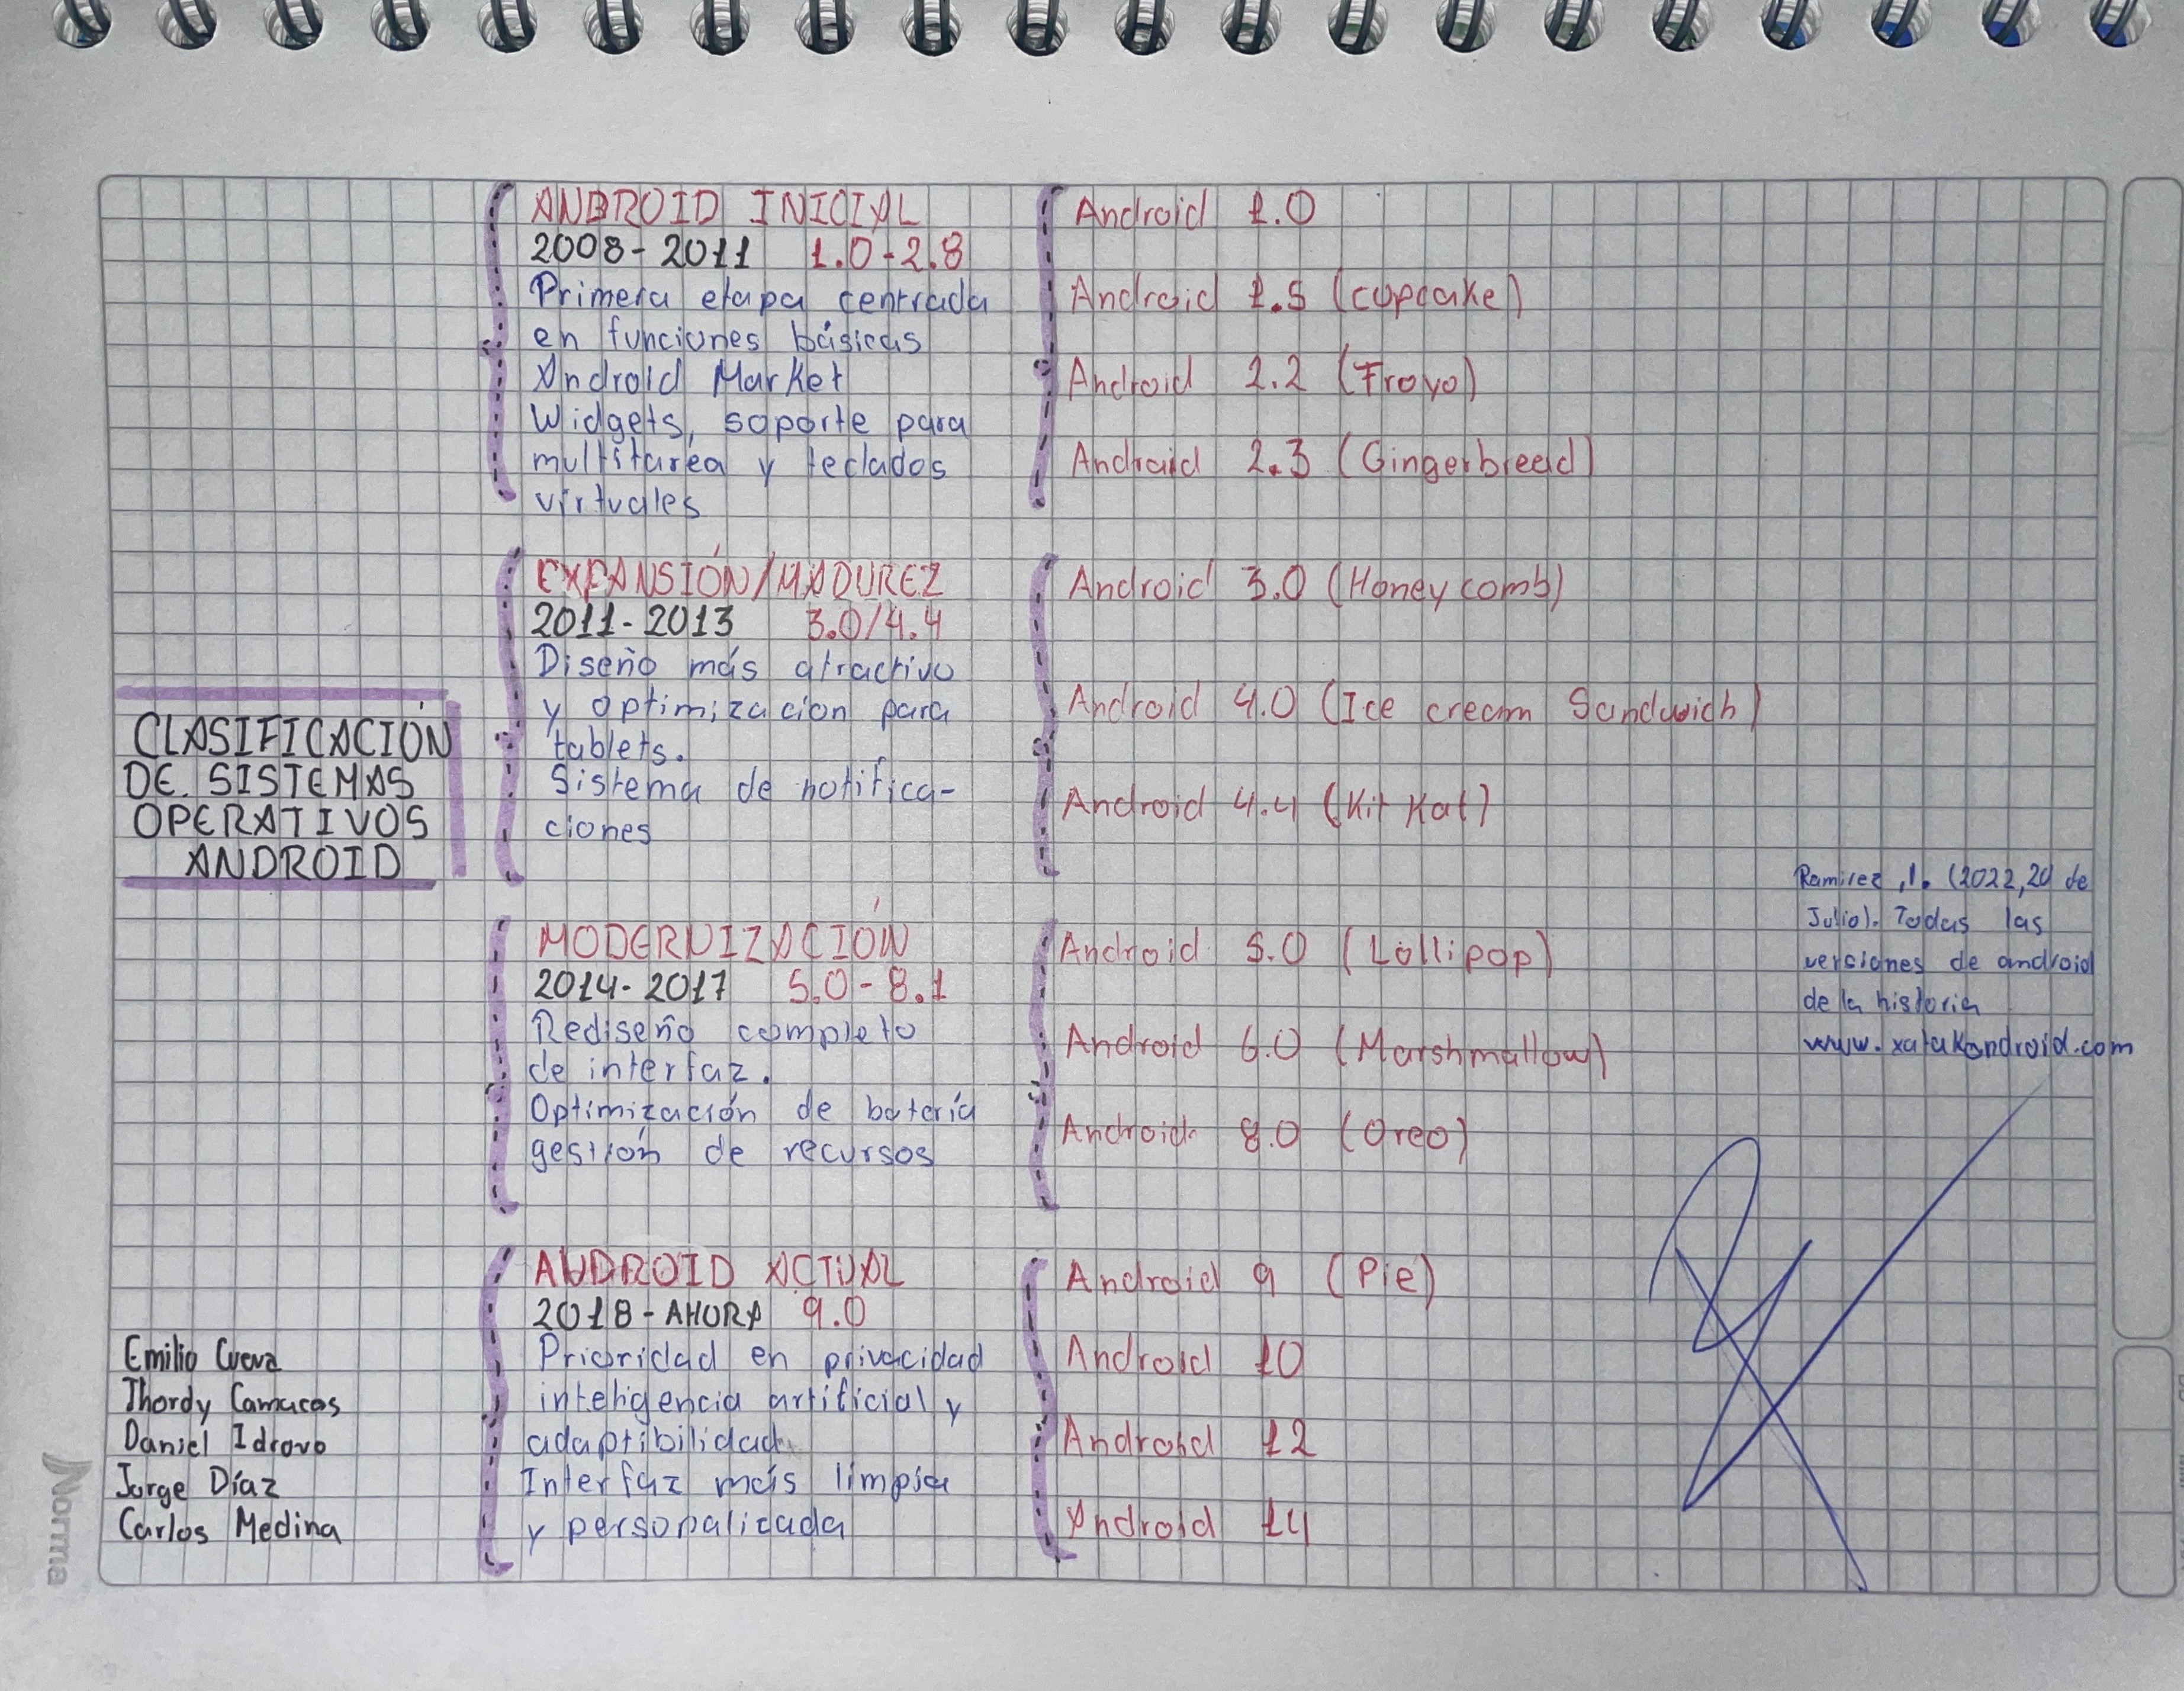 CLASIFICACIÓN
DE SISTEMAS
OPERATIVOS
ANDROID
ANDROID INICIAL
2008-2011 1.0-2.8
Primera etapa centrada
en funciones básicas
Android Market
Widgets, soporte para
multitarea y teclados
virtuales
Android 1.0
Android 1.5 (cupcake)
Android 2.2 (Froyo)
Android 2.3 (Gingerbread)
EXPANSIÓN/MADUREZ
2011-2013 3.0/4.4
Diseño más atractivo
y optimización para
tablets.
Sistema de notifica-
ciones
Android 3.0 (Honey comb)
Android 4.0 (Ice cream Sandwich)
Android 4.4 (Kit Kat)
MODERNIZACIÓN
2014-2017 5.0-8.1
Rediseño completo
de interfaz.
Optimización de batería
gestión de recursos
Android 5.0 (Lollipop)
Android 6.0 (Marshmallow)
Android 8.0 (Oreo)
ANDROID ACTUAL
2018-AHORA 9.0
Prioridad en privacidad
inteligencia artificial y
adaptibilidad
Interfaz más limpia
y personalizada
Android 9 (Pie)
Android 10
Android 12
Android 14
Ramirez, I. (2022, 20 de
Julio). Todas las
versiones de android
de la historia
www.xatakandroid.com
Emilio Cueva
Jhordy Camacas
Daniel Idrovo
Jorge Díaz
Carlos Medina
Norma